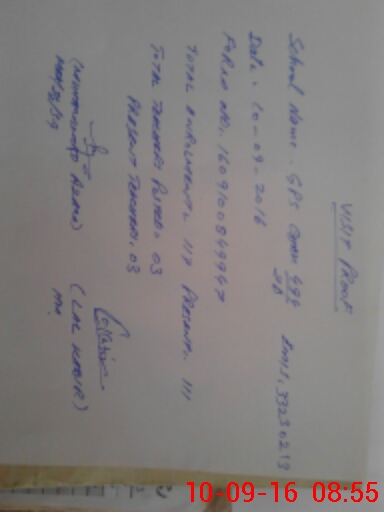 VISIT PROOF
School Name. GPS Chak 494 JB EMIS. 33230213
Date. 10-09-2016
FORM NO. 16091008499&7
TOTAL ENROLMENT. 117 PRESENT. 111
TOTAL TEACHERS POSTED. 03
PRESENT TEACHERS. 03
(LAL KABIR)
10-09-16 08:55